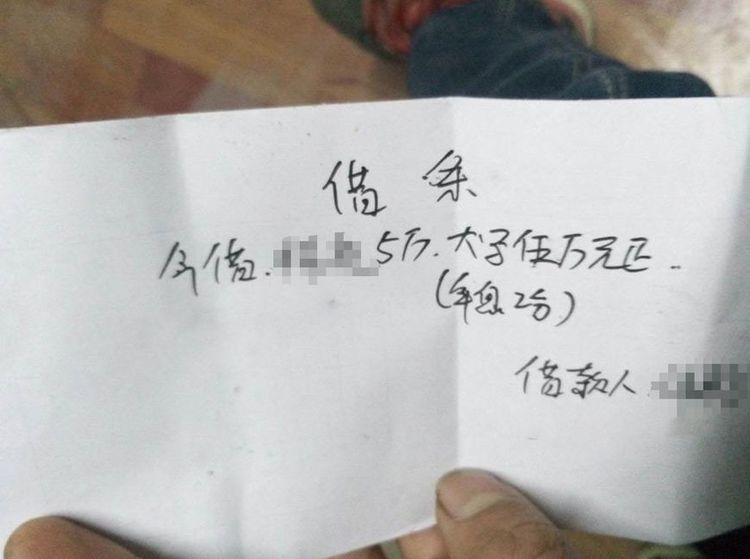 借条
今借.5万.大子伍万元正.
(年息2分)
借款人